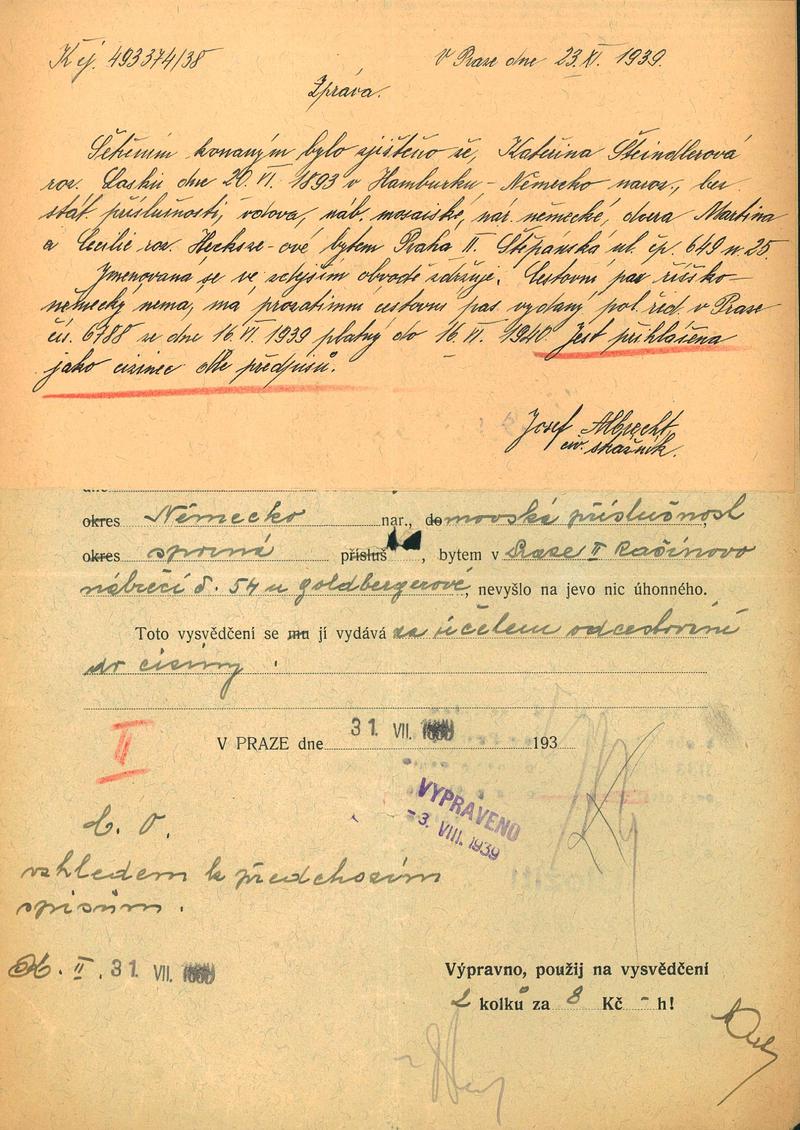 K čj. 493374/38
V Praze dne 23.XI. 1939.
Zpráva.
Šetřením konaným bylo zjištěno že, Kateřina Šteindlerová
roz. Laskii dne 20.VI. 1893 v Hamburku - Německo naroz., bez
stát. příslušnosti, vdova, náb. mosaiské, nár. německé, dcera Martina
a Cecilie roz. Hecksze-ové bytem Praha II. Štěpánská ul. čp. 649 n. 25.
Jmenovaná se ve zdejším obvodě zdržuje. Cestovní pas říšsko-
německý nemá, má prozatimní cestovní pas vydaný pol. řed. v Praze
čís. 6788 ze dne 16.VI. 1939 platný do 16.VI. 1940. Jest přihlášena
jako cizinec dle předpisů.
Josef Albrecht,
civ. strážník.
okres Německo nar., domovská příslušnost
okres sporná přísluš , bytem v Praze II Rašínovo
nábřeží č. 54 u Goldbergerové, nevyšlo na jevo nic úhonného.
Toto vysvědčení se mu jí vydává za účelem odcestování
do ciziny.
II
V PRAZE dne 31. VII. 193
VYPRAVENO
- 3. VIII. 1939
vzhledem k předchozím
spisům.
II. 31. VII.
Výpravno, použij na vysvědčení
2 kolků za 8 Kč - h!